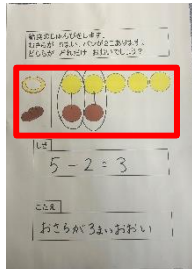 朝食のじゅんびをします。
おさらが 5まい、パンが2こあります。
どちらが どれだけ おおいでしょう?
しき
5-2=3
こたえ
おさらが3まいおおい